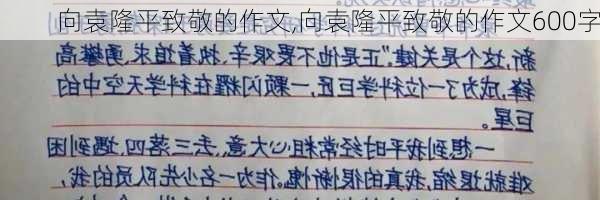 向袁隆平致敬的作文,向袁隆平致敬的作文600字
新,这个是关键。"正是他不畏艰辛、执着追求、勇攀高
锋成为了一位科学巨匠,一颗闪耀在科学天空中的
巨星。
一想到我平时经常粗心大意,丢三落四,遇到困
难就退缩,我真的很惭愧。作为一名少先队员的我,